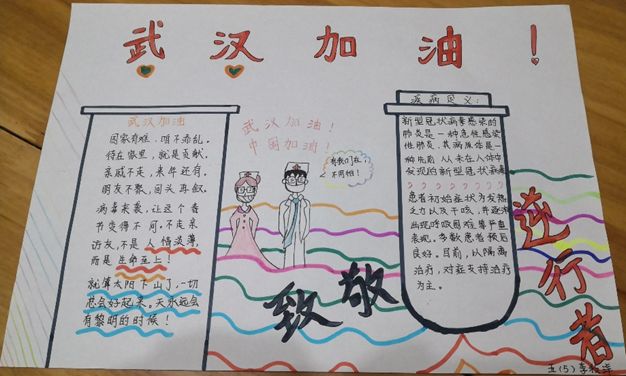 武汉加油!
武汉加油
国家有难,咱不添乱。
待在家里,就是贡献。
亲戚不走,来年还有,
朋友不聚,回头再叙。
病毒来袭,让这个春
节变得不同。不走亲
访友,不是人情淡薄,
而是生命至上!
就算太阳下山了,一切
总会好起来。天永远会
有黎明的时候!
武汉加油!
中国加油!
有我们在,
不用怕!
致敬
逆行者
疾病定义:
新型冠状病毒感染的
肺炎是一种急性感染
性肺炎,其病原体是一
种先前从未在人体中
发现的新型冠状病毒
患者初始症状为发热
乏力以及干咳,并逐渐
出现呼吸困难等严重
表现。多数患者预后
良好。目前,以隔离
治疗,对症支持治疗
为主。
五(5)李